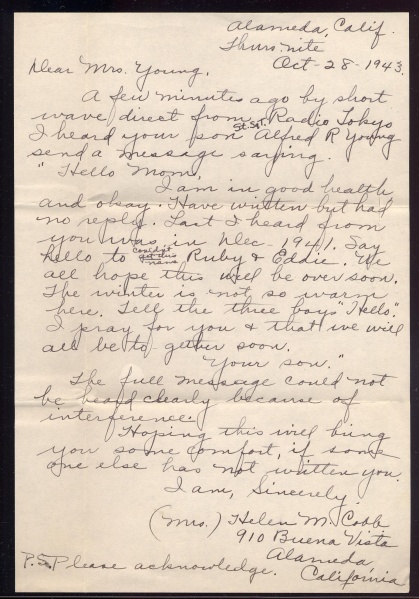 Alameda, Calif.
Thurs. nite
Oct-28-1943.
Dear Mrs. Young,
A few minutes ago by short
wave direct from Radio Tokyo
I heard your son St. Sgt. Alfred R Young
send a message saying.
"Hello Mom,
I am in good health
and okay. Have written but had
no reply. Last I heard from
you was in Dec- 1941. Say
hello to (couldn't get this name) Ruby & Eddie. We
all hope this will be over soon.
The winter is not so warm
here. Tell the three boys "Hello".
I pray for you & that we will
all be together soon.
Your son."
The full message could not
be heard clearly because of
interference.
Hoping this will bring
you some comfort, if some
one else has not written you.
I am, Sincerely
(Mrs.) Helen M. Cobb
910 Buena Vista
Alameda,
California
P.S. Please acknowledge.